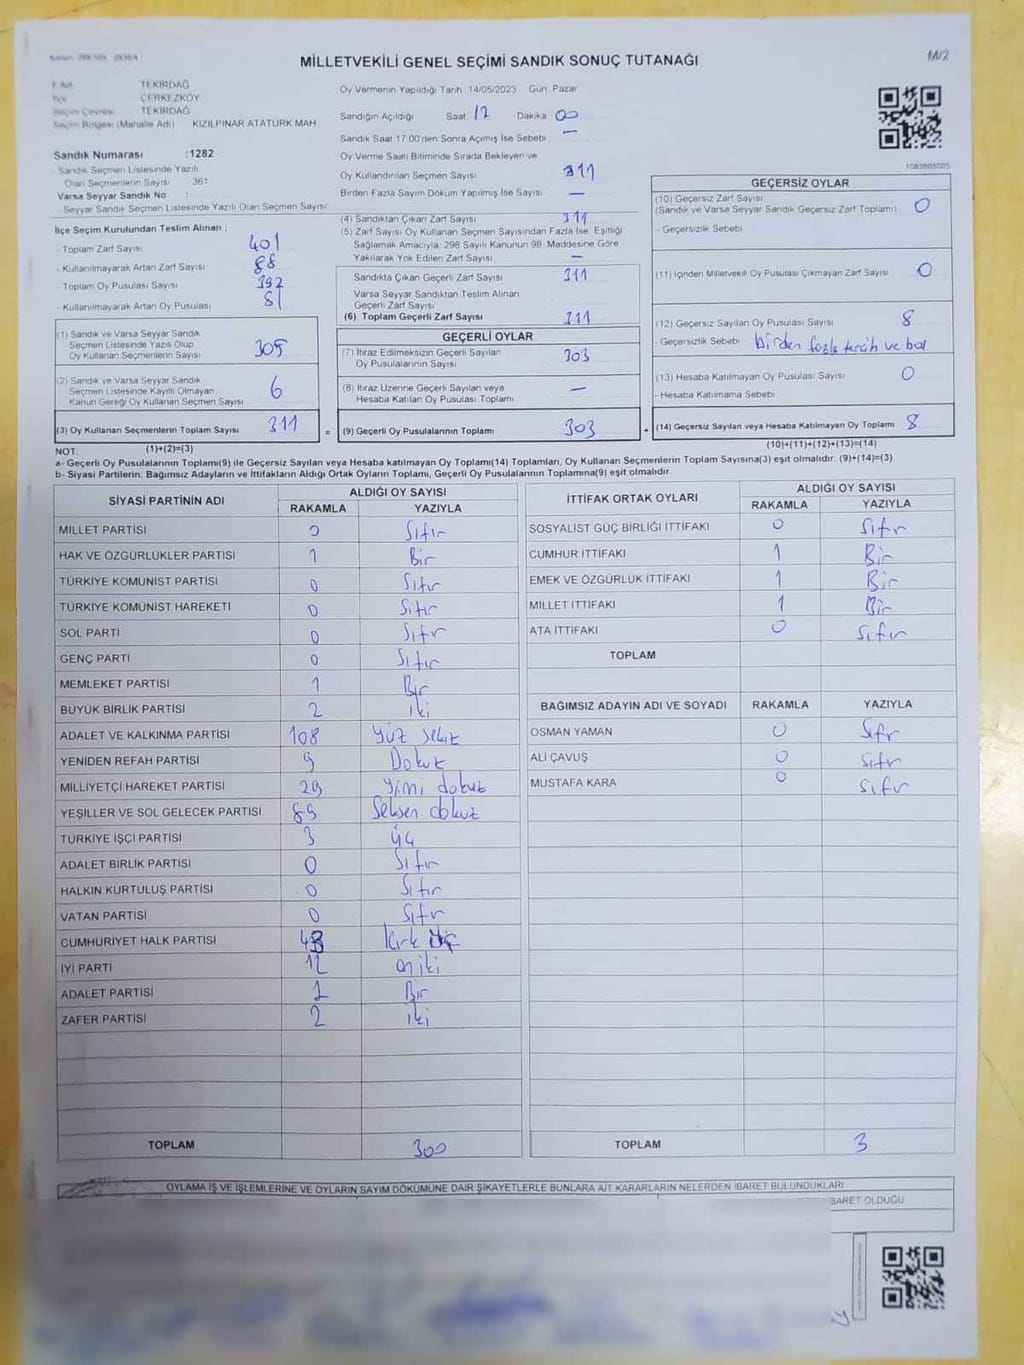 MİLLETVEKİLİ GENEL SEÇİMİ SANDIK SONUÇ TUTANAĞI
M/2
TEKİRDAĞ
ÇERKEZKÖY
TEKİRDAĞ
Seçim Bölgesi (Mahalle Adı) KIZILPINAR ATATÜRK MAH.
Sandık Numarası :1282
Sandık Seçmen Listesinde Yazılı
Olan Seçmenlerin Sayısı 361
Varsa Seyyar Sandık No :
- Seyyar Sandık Seçmen Listesinde Yazılı Olan Seçmen Sayısı:
İlçe Seçim Kurulundan Teslim Alınan ;
- Toplam Zarf Sayısı 401
- Kullanılmayarak Artan Zarf Sayısı 88
- Toplam Oy Pusulası Sayısı 392
- Kullanılmayarak Artan Oy Pusulası 81
(1) Sandık ve Varsa Seyyar Sandık
Seçmen Listesinde Yazılı Olup
Oy Kullanan Seçmenlerin Sayısı 305
(2) Sandık ve Varsa Seyyar Sandık
Seçmen Listesinde Kayıtlı Olmayan
Kanun Gereği Oy Kullanan Seçmen Sayısı 6
(3) Oy Kullanan Seçmenlerin Toplam Sayısı 311
Oy Vermenin Yapıldığı Tarih 14/05/2023 Gün Pazar
Sandığın Açıldığı Saat 17 Dakika 00
Sandık Saat 17.00'den Sonra Açılmış İse Sebebi —
Oy Verme Saati Bitiminde Sırada Bekleyen ve
Oy Kullandırılan Seçmen Sayısı 311
Birden Fazla Sayım Döküm Yapılmış İse Sayısı —
(4) Sandıktan Çıkan Zarf Sayısı 311
(5) Zarf Sayısı Oy Kullanan Seçmen Sayısından Fazla İse, Eşitliği
Sağlamak Amacıyla, 298 Sayılı Kanunun 98. Maddesine Göre
Yakılarak Yok Edilen Zarf Sayısı —
Sandıkta Çıkan Geçerli Zarf Sayısı 311
Varsa Seyyar Sandıktan Teslim Alınan
Geçerli Zarf Sayısı
(6) Toplam Geçerli Zarf Sayısı 311
GEÇERLİ OYLAR
(7) İtiraz Edilmeksizin Geçerli Sayılan
Oy Pusulalarının Sayısı 303
(8) İtiraz Üzerine Geçerli Sayılan veya
Hesaba Katılan Oy Pusulası Toplamı —
= (9) Geçerli Oy Pusulalarının Toplamı 303
1083805005
GEÇERSİZ OYLAR
(10) Geçersiz Zarf Sayısı
(Sandık ve Varsa Seyyar Sandık Geçersiz Zarf Toplamı) 0
- Geçersizlik Sebebi
(11) İçinden Milletvekili Oy Pusulası Çıkmayan Zarf Sayısı 0
(12) Geçersiz Sayılan Oy Pusulası Sayısı 8
- Geçersizlik Sebebi birden fazla tercih ve boş
(13) Hesaba Katılmayan Oy Pusulası Sayısı 0
- Hesaba Katılmama Sebebi
+ (14) Geçersiz Sayılan veya Hesaba Katılmayan Oy Toplamı 8
NOT: (1)+(2)=(3) (10)+(11)+(12)+(13)=(14)
a- Geçerli Oy Pusulalarının Toplamı(9) ile Geçersiz Sayılan veya Hesaba katılmayan Oy Toplamı(14) Toplamları, Oy Kullanan Seçmenlerin Toplam Sayısına(3) eşit olmalıdır. (9)+(14)=(3)
b- Siyasi Partilerin, Bağımsız Adayların ve İttifakların Aldığı Ortak Oyların Toplamı, Geçerli Oy Pusulalarının Toplamına(9) eşit olmalıdır.
SİYASİ PARTİNİN ADI ALDIĞI OY SAYISI
RAKAMLA YAZIYLA
MİLLET PARTİSİ 0 Sıfır
HAK VE ÖZGÜRLÜKLER PARTİSİ 1 Bir
TÜRKİYE KOMÜNİST PARTİSİ 0 Sıfır
TÜRKİYE KOMÜNİST HAREKETİ 0 Sıfır
SOL PARTİ 0 Sıfır
GENÇ PARTİ 0 Sıfır
MEMLEKET PARTİSİ 1 Bir
BÜYÜK BİRLİK PARTİSİ 2 iki
ADALET VE KALKINMA PARTİSİ 108 yüz sekiz
YENİDEN REFAH PARTİSİ 9 Dokuz
MİLLİYETÇİ HAREKET PARTİSİ 29 yirmi dokuz
YEŞİLLER VE SOL GELECEK PARTİSİ 89 Seksen dokuz
TÜRKİYE İŞÇİ PARTİSİ 3 üç
ADALET BİRLİK PARTİSİ 0 Sıfır
HALKIN KURTULUŞ PARTİSİ 0 Sıfır
VATAN PARTİSİ 0 Sıfır
CUMHURİYET HALK PARTİSİ 43 kırk üç
İYİ PARTİ 12 on iki
ADALET PARTİSİ 1 Bir
ZAFER PARTİSİ 2 iki
TOPLAM 300
İTTİFAK ORTAK OYLARI ALDIĞI OY SAYISI
RAKAMLA YAZIYLA
SOSYALİST GÜÇ BİRLİĞİ İTTİFAKI 0 Sıfır
CUMHUR İTTİFAKI 1 Bir
EMEK VE ÖZGÜRLÜK İTTİFAKI 1 Bir
MİLLET İTTİFAKI 1 Bir
ATA İTTİFAKI 0 Sıfır
TOPLAM
BAĞIMSIZ ADAYIN ADI VE SOYADI RAKAMLA YAZIYLA
OSMAN YAMAN 0 Sıfır
ALİ ÇAVUŞ 0 Sıfır
MUSTAFA KARA 0 Sıfır
TOPLAM 3
OYLAMA İŞ VE İŞLEMLERİNE VE OYLARIN SAYIM DÖKÜMÜNE DAİR ŞİKAYETLERLE BUNLARA AİT KARARLARIN NELERDEN İBARET BULUNDUKLARI
BARET OLDUĞU